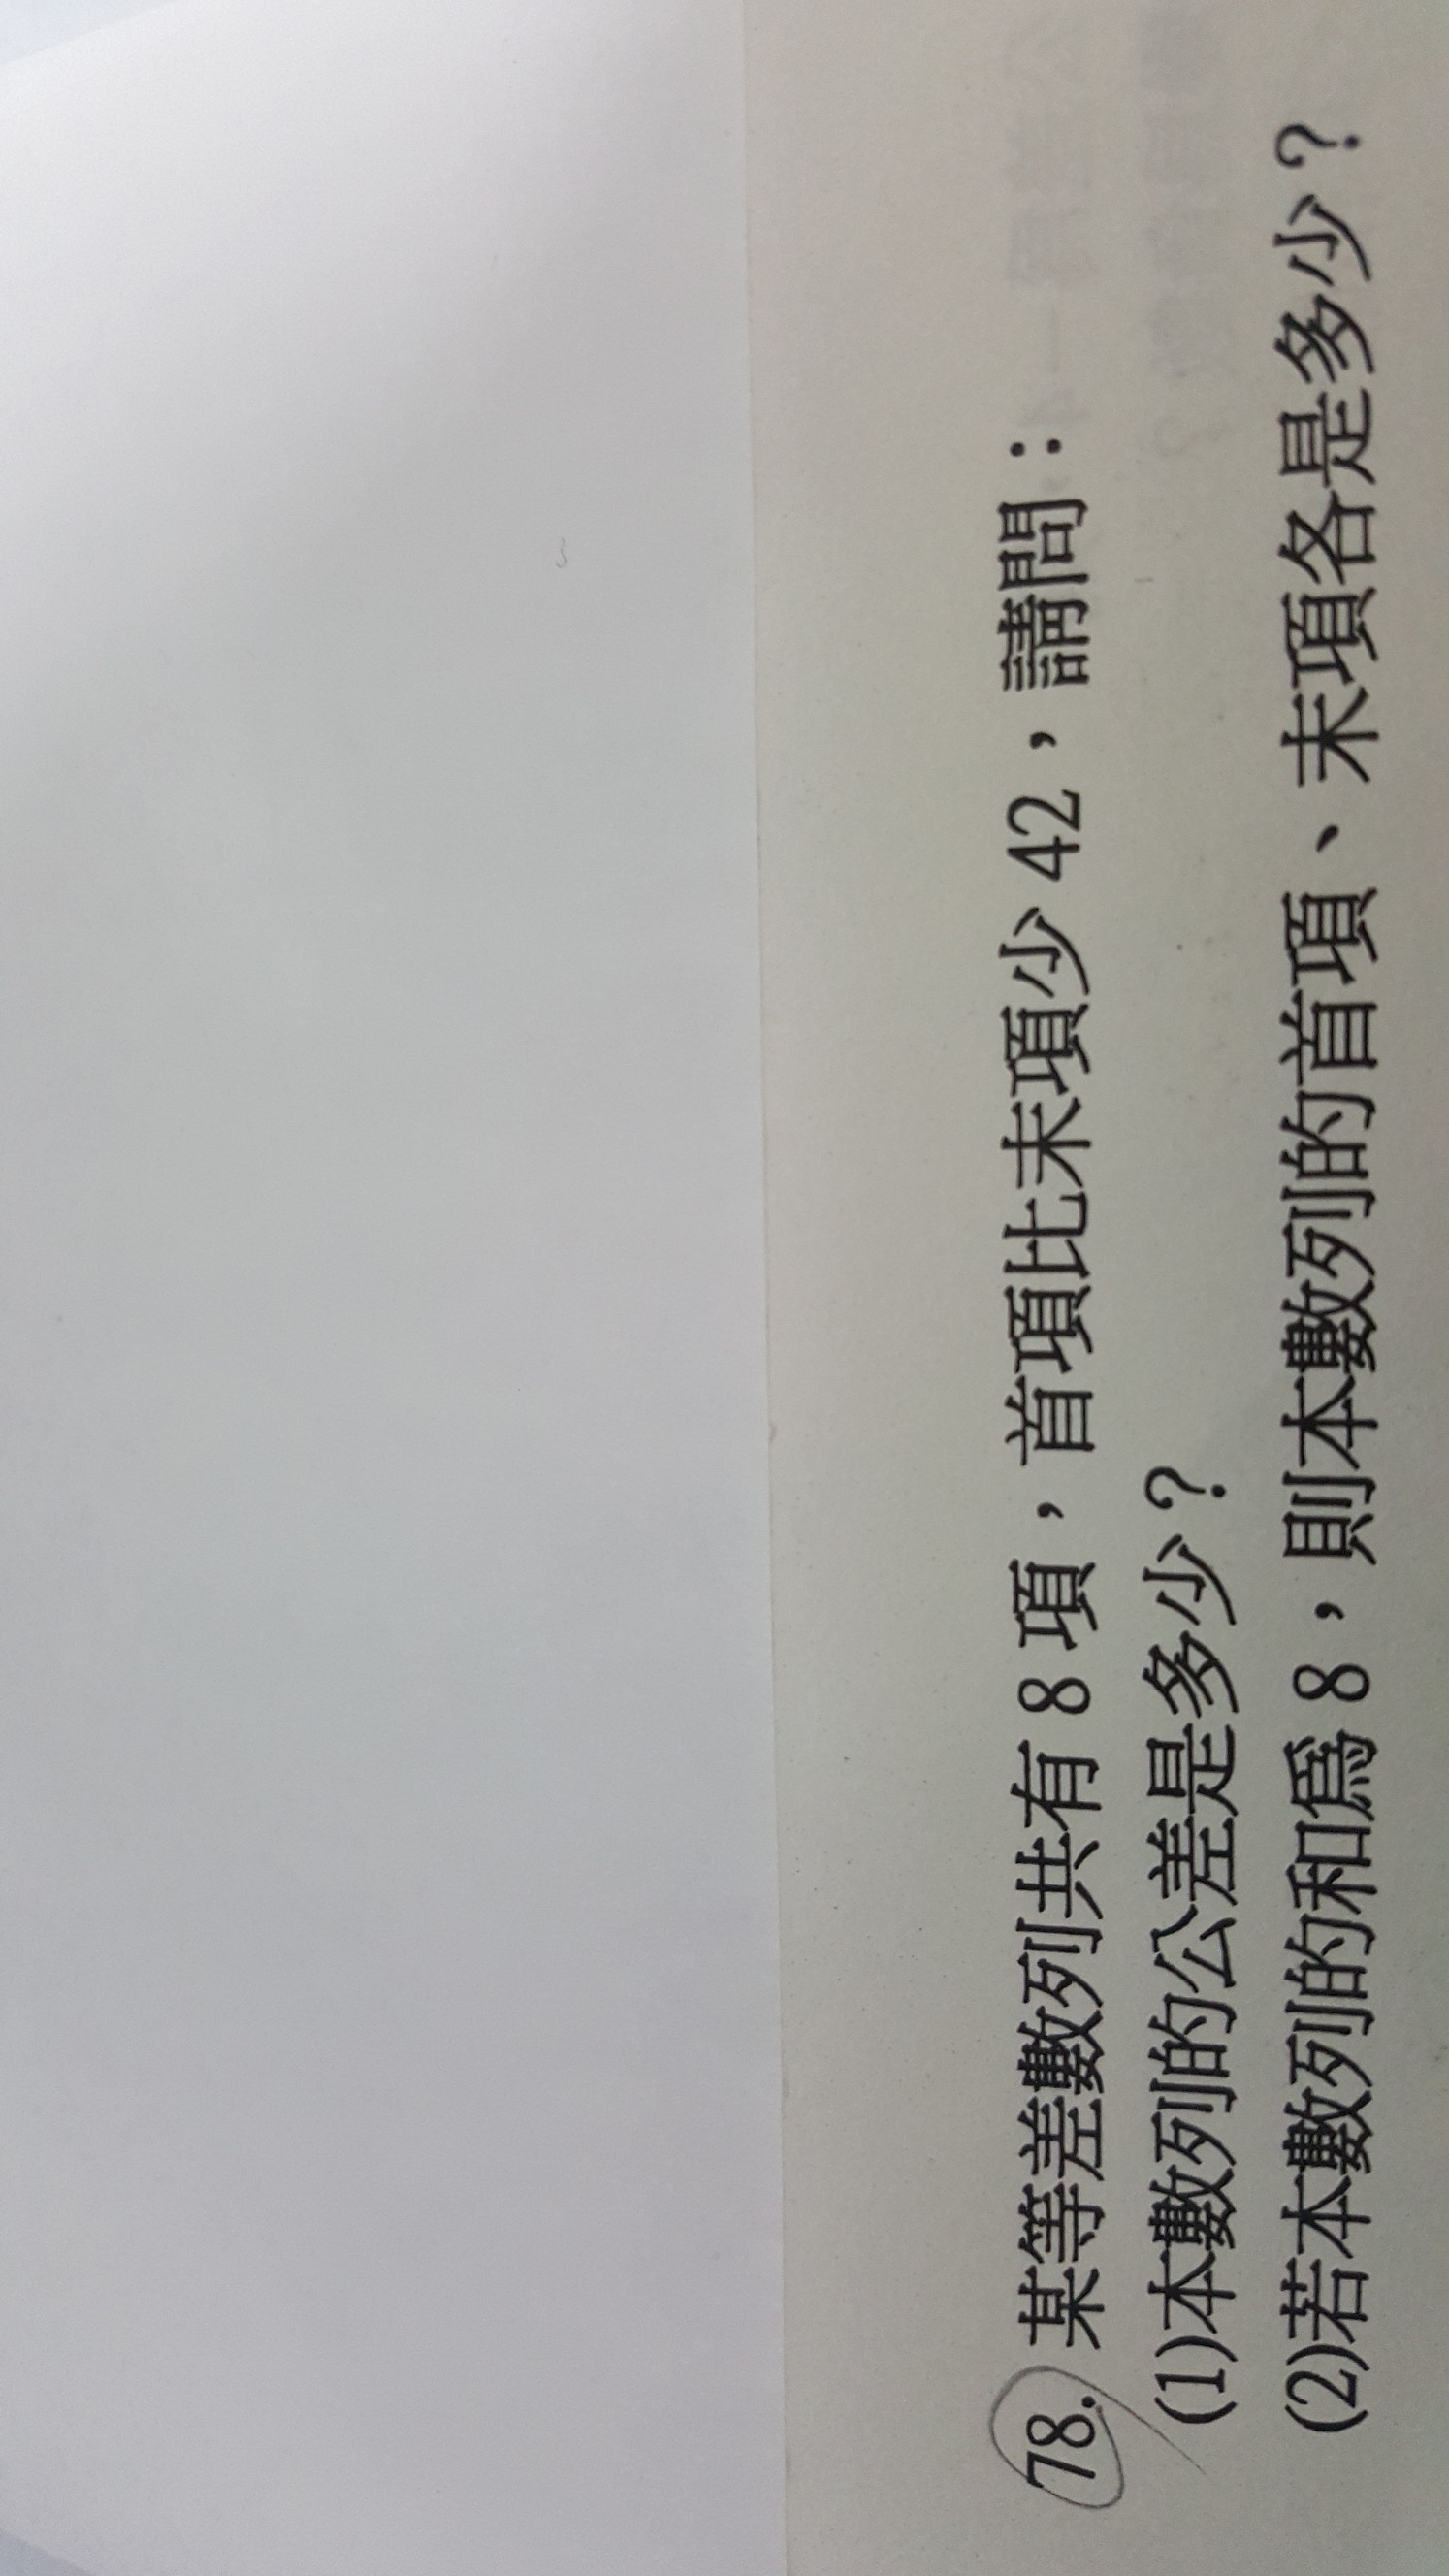 78. 某等差數列共有 8 項，首項比末項少 42，請問：
(1)本數列的公差是多少？
(2)若本數列的和爲 8，則本數列的首項、末項各是多少？